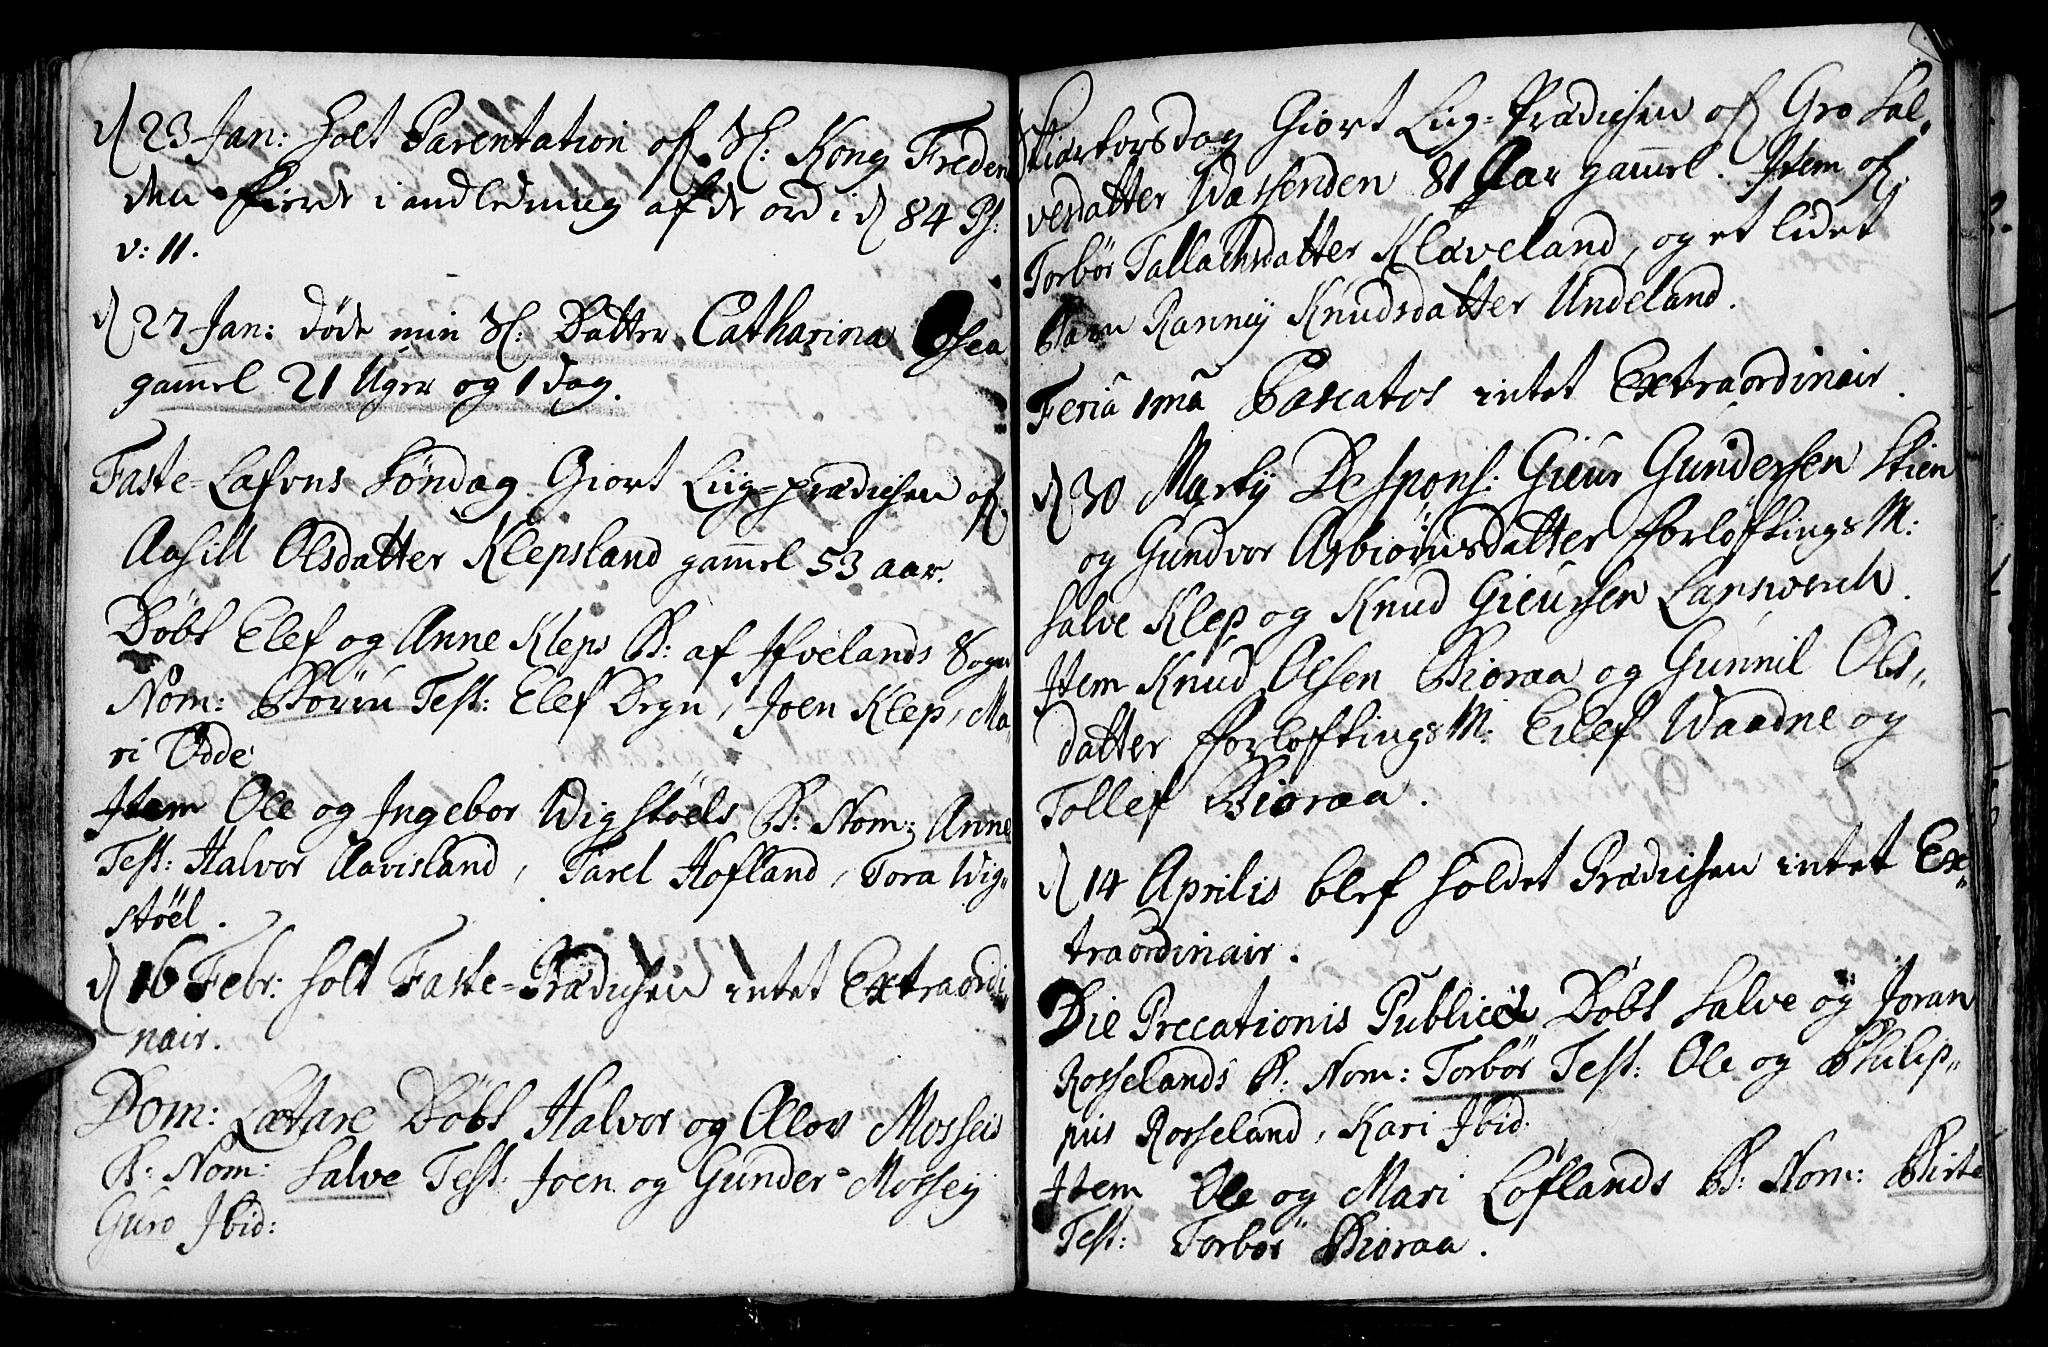 d 23 Jan: holt Parentation ofr Sl: Kong Frederi
den fierde i andledning af de ord i d 84 Ps:
v: 11.
d 27 Jan: døde min Sl: Datter Catharina
gam̄el 21 Uger og 1 dag.
Faste-Lafvns Søndag Giort Liig-prædichen ofr
Aasill Olsdatter Klepsland gam̄el 53 aar.
Døbt Elef og Anne Kleps B: af Hvelands Sogn
Nom: Børru Test: Elef Degn, Joen Klep, Ma-
ri Odde
Item Ole og Ingebor Wigstøels B: Nom: Anne
Test: Halvor Aavisland, Tarel Hofland, Tora Wig-
støel.
d 16 Febr: holt Faste-Prædichen intet Extraordi-
nair.
Dom: Lætare Døbt Halvor og Olov Mosseis
B: Nom: Salve Test: Joen og Gunder Mossey
Guro Ibid:
Skiærtorsdag Giort Liig-Prædichen ofr Gro Sal-
vesdatter Wæssenden 81 Aar gam̄el. Item ofr
Torbør Tallachsdatter Klaveland, og et lidet
Barn Ranney Knudsdatter Undeland.
Feria 1ma Pascatos intet Extraordinair.
d 30 Martij Despons: Gieur Gundersen Stien
og Gundvor Asbiørnsdatter Forløftings M:
Salve Klep og Knud Gieursen Lanswerch.
Item Knud Olsen Bioraa og Gunnil Ols-
datter Forløftings M: Eilef Waadne og
Tollef Bioraa.
d 14 Aprilis blef holdet Prædichen intet Ex-
traordinair.
Die Precationis Publicæ Døbt Salve og Joran
Rosselands B: Nom: Torbør Test: Ole og Philip-
pus Rosseland, Kari Ibid.
Item Ole og Mari Løflands B: Nom: Birte
Test: Torbør Bioraa.